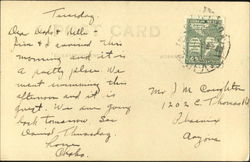 Tuesday
POST CARD
Dear Dad &
& I arrived this
morning and it is
a pretty place We
went swimming this
afternoon and it is
great. We are going
back tomorrow. See
David Thursday.
Love
Mr J M
1202 E Thomas Rd
Phoenix